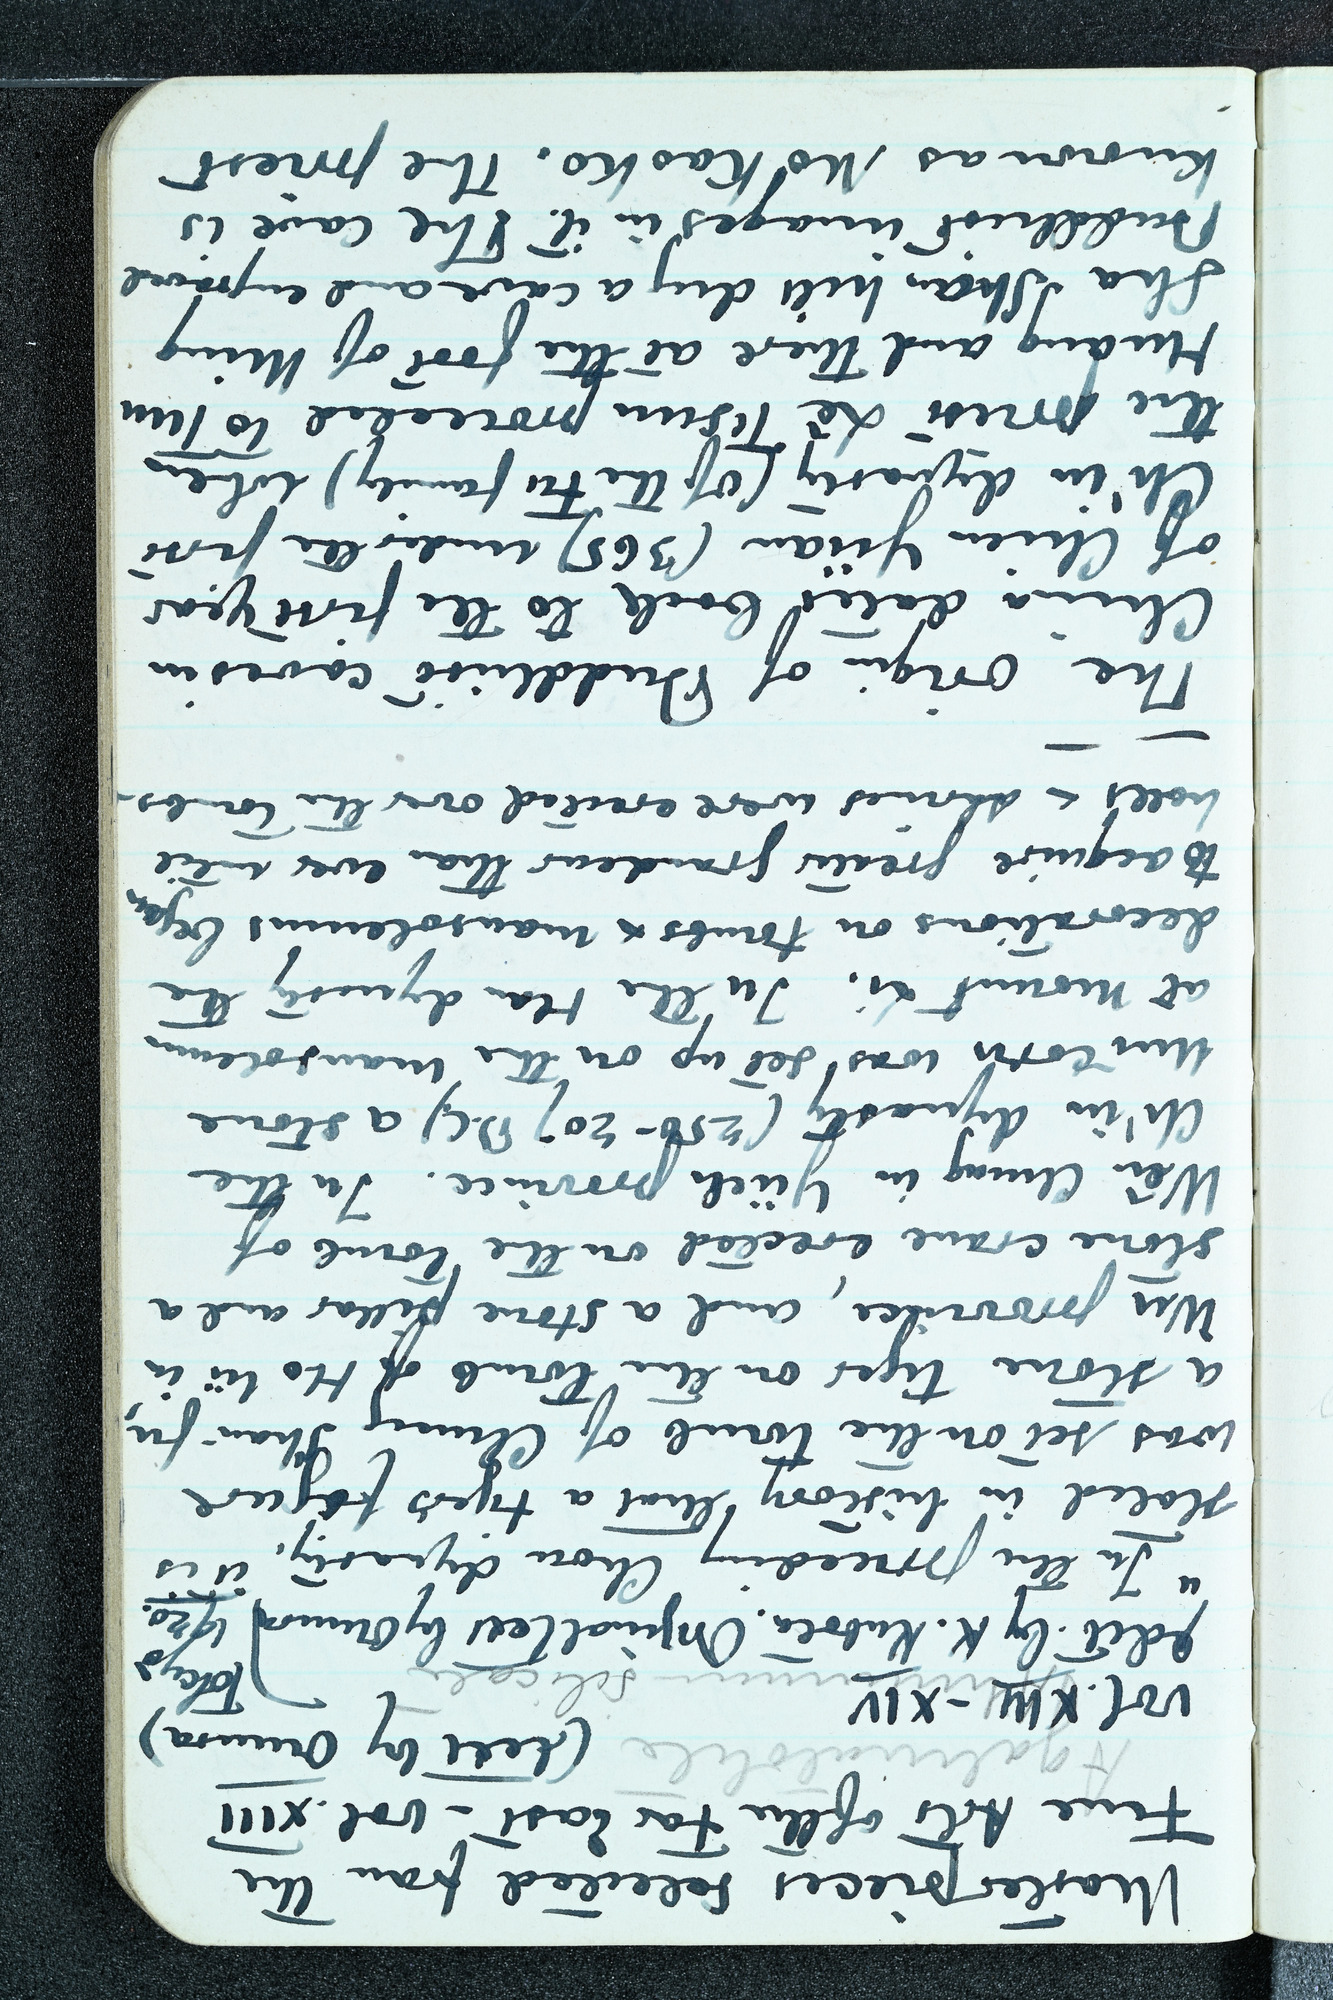 Masterpieces Selected from the
Fine Arts of the Far East - Vol. XIII
Agalmatolite (text by Omura)
Vol. XIII - XIV
silicate
Edit. by K. Kubota. Original text by Omura Tokyo 1920.
"In the preceding Chou dynasty, it is
stated in history that a tiger's figure
was set on the tomb of Chung Shan-fu,
a stone tiger on the tomb of Ho lü in
Wu province, and a stone pillar and a
stone crane erected on the tomb of
Wēn Chung in Yüeh province. In the
Ch'in dynasty (250-207 B.C.) a stone
unicorn was set up on the mausoleum
at Mount Li. In the Han dynasty the
decorations on tombs & mausoleums began
to acquire greater grandeur than ever until
halls & shrines were erected over the tombs.
— —
The origin of Buddhist caves in
China dates back to the first year
of Chien Yüan (365) under the first
Ch'in dynasty (of the Fu family) when
the priest Lê Tsun proceeded to Tun
Huang and there at the foot of Ming
Sha Shan hill dug a cave and engraved
Buddhist images in it. The cave is
known as Mo Kao Ko. The priest